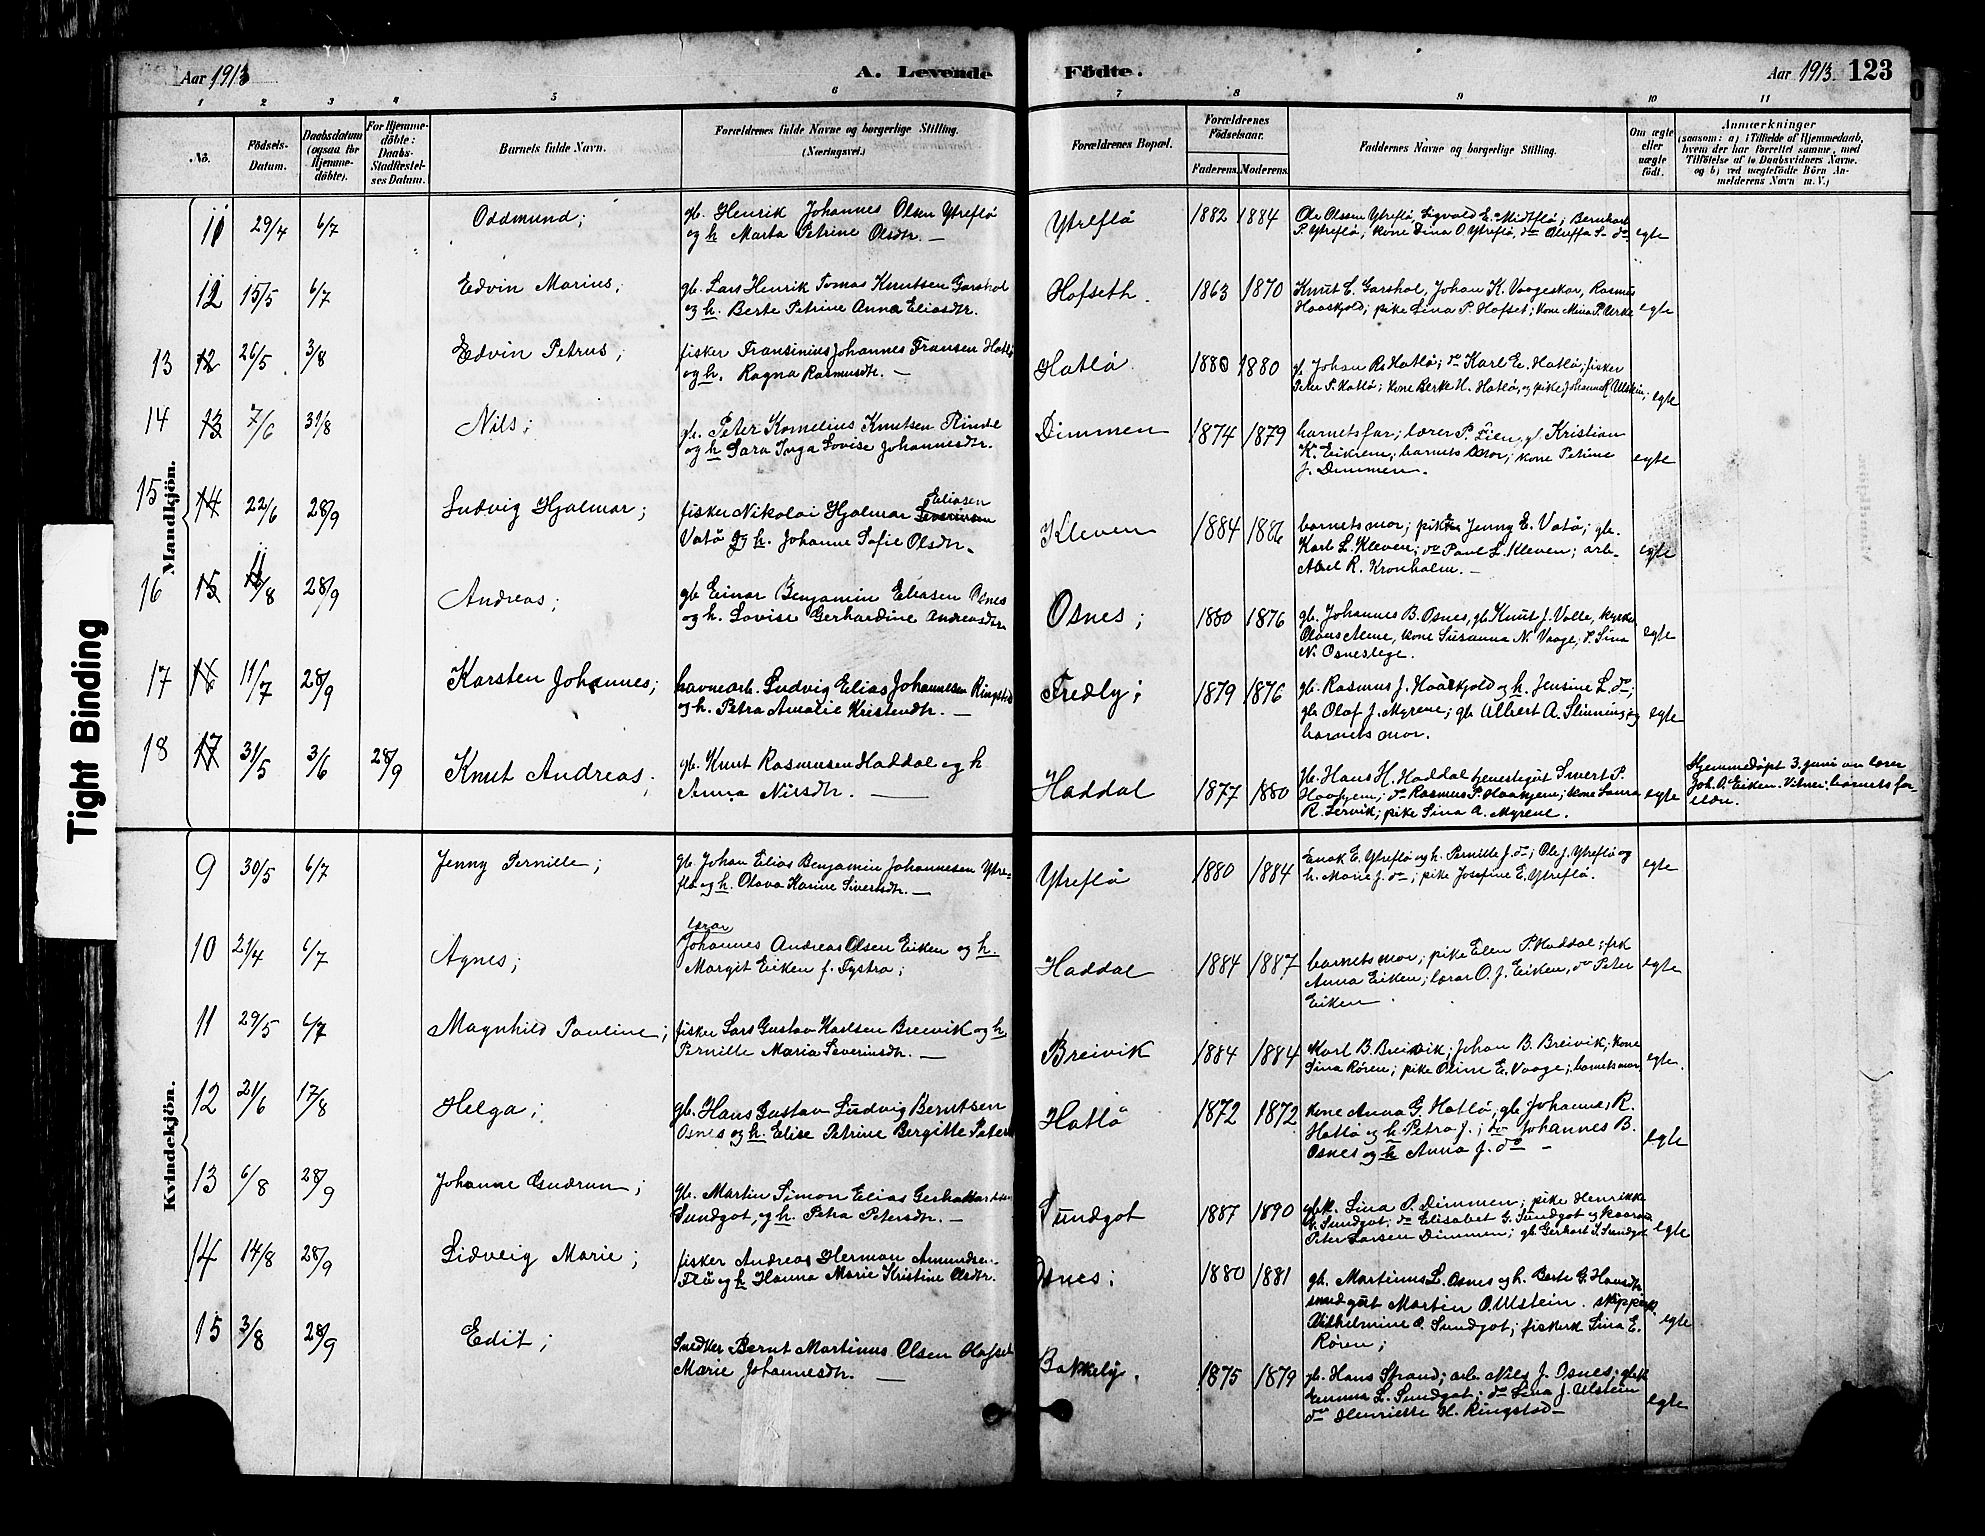 Aar 1913
A. Levende
Födte.
Aar 1913. 123
1 2 3 4 5 6 7 8 9 10 11
No.
Födsels-
Datum.
Daabsdatum
(ogsaa for
Hjemme-
döbte).
For Hjemme-
döbte:
Daabs-
Stadfæstel-
ses Datum.
Barnets fulde Navn.
Forældrenes fulde Navne og borgerlige Stilling.
(Næringsvei.)
Forældrenes Bopæl.
Forældrenes
Födselsaar.
Faderens. Moderens.
Faddernes Navne og borgerlige Stilling.
Om ægte
eller
uægte
födt.
Anmærkninger
(saasom: a) i Tilfælde af Hjemmedaab,
hvem der har forrettet samme, med
Tilföielse af to Daabsvidners Navne.
og b) ved uægtefödte Börn An-
melderens Navn m. V.)
Mandkjön.
11 29/4 6/7 Oddmund;
gb. Henrik Johannes Olsen Ytreflö
og h Marta Petrine Olsdtr. —
Ytreflö 1882 1884
Ole Olsen Ytreflö, Sigvald E. Midtflö; Bernhard
P. Ytreflö, kone Dina O Ytreflö, do Oleffa S. do
egte
12 15/5 6/7 Edvin Marius;
gb. Lars Henrik Tomas Knutsen Garshol
og h. Berte Petrine Anna Eliasdtr.
Hofseth. 1863 1870
Knut C. Garshol, Johan K. Vaageskar, Rasmus
Haaskjold; pike Lina P. Hofset; kone Mina P. Urke
egte
13 12 26/5. 3/8 Edvin Petrus;
fisker Fransinius Johannes Fransen Hatlö
og h. Ragna Rasmusdtr. —
Hatlö 1880 1880
g. Johan R. Hatlö; do Karl E. Hatlö; fisker
Peter S. Hatlö; kone Berte H. Hatlö, og pike Johanna R Ulstein;
egte
14 13 7/6 31/8 Nils;
gb. Peter Kornelius Knutsen Rinde
og h Sara Inga Lovise Johannesdtr.
Dimmen 1874 1879
barnets far; lærer P. Lien, g. Kristian
K. Eikrem; barnets mor; kone Petrine
J. Dimmen.
egte
15 14 22/6 28/9 Ludvig Hjalmar;
Eliasen
fisker Nikolai Hjalmar Severinsen
Vatö og h. Johanne Sofie Olsdtr.
Kleven 1884 1886
barnets mor; pike Jenny E. Vatö; gb.
Karl L. Kleven; do Paul L. Kleven; arb.
Abel R. Kronholm. —
egte
16 15 11/8 28/9 Andreas;
gb. Einar Benjamin Eliasen Osnes
og h. Lovise Gerhardine Andreasdtr
Osnes; 1880 1876
gb. Johannes B. Osnes, gb. Knut J. Valle, kyrkes.
Olaus Aeme, kone Susanna N. Vaage; d. Sina
N. Osneslege.
egte
17 16 11/7 28/9 Karsten Johannes;
havnearb. Ludvig Elias Johannesen Ringstad
og h. Petra Amalie Kristendtr. —
Fredly; 1879 1876
gb. Rasmus J. Haaskjold og h. Jensine L. do;
gb Olaf J. Myrene; gb Albert A. Slinning; og
barnets mor.
egte
18 17 31/5 3/6 28/9 Knut Andreas;
gb. Knut Rasmusen Haddal og h
Anna Nilsdtr. —
Haddal 1877 1880
gb. Hans H. Haddal tjenestegut Sivert P.
Haahjem; do Rasmus P. Haahjem; kone Laura
R. Lervik; pike Sina A. Myrene.
egte
Hjemmedöpt 3. juni av lærer
Joh. A. Eiken. Vitner: barnets for-
eldre.
Kvindekjön.
9 30/5 6/7 Jenny Pernille;
gb. Johan Elias Benjamin Johannesen Ytre-
flö og h. Olava Karine Siversdtr. —
Ytreflö 1880 1884
Enok E. Ytreflö og h. Pernille J. do; Ole J. Ytreflö og
h. Marie J. do; pike Josefine E. Ytreflö.
egte
10 21/4 6/7 Agnes;
lærar
Johannes Andreas Olsen Eiken og h.
Margit Eiken f. Tystra;
Haddal 1884 1887
barnets mor; pike Elen P. Haddal; frk
Anna Eiken; lærar O. J. Eiken, do Peter
Eiken.
egte
11 29/5 6/7 Magnhild Pauline;
fisker Lars Gustav Karlsen Breivik og h
Pernille Maria Severinsdtr. —
Breivik 1884 1884
Karl B. Breivik; Johan B. Breivik; kone
Sina Rören; pike Oline E. Vaage; barnets mor
egte.
12 21/6 17/8 Helga;
gb. Hans Gustav Ludvig Berntsen
Osnes og h. Elise Petrine Bergitte Peters
Hatlö 1872 1872
kone Anna G. Hatlö, gb Johannes R.
Hatlö og h Petra J.; do Johannes B.
Osnes og h Anna J. do —
egte
13 6/8 28/9 Johanne Gudrun;
gb. Martin Simon Elias Gerhardsen
Sundgot, og h. Petra Petersdtr. —
Sundgot 1887 1890
gbk. Lina P. Dimmen; pike Henrikke
G. Sundgot; do Elisabet G. Sundgot og
Peter Larsen Dimmen; gb Gerhart S. Sundgot
egte
14 14/8 28/9 Lidveig Marie;
fisker Andreas Herman Amundsen
Flö og h Hanna Marie Kristine
Osnes; 1880 1881
gb. Martinus L. Osnes og h. Berte G. Hansdtr
Martin O. Ulstein.
Vilhelmine A. Sundgot; fiskerk Sina E.
Rören;
egte
15 3/8 28/9 Edit;
Snedker Bernt Martinus Olsen Hofset
Marie Johannesdtr. —
Bakkely. 1875 1879
gb. Hans Strand; arb. Nils J. Osnes; gbk
Emma L. Sundgot; do Lina J. Ulstein
do Henriette H. Ringstad —
egte
Tight Binding